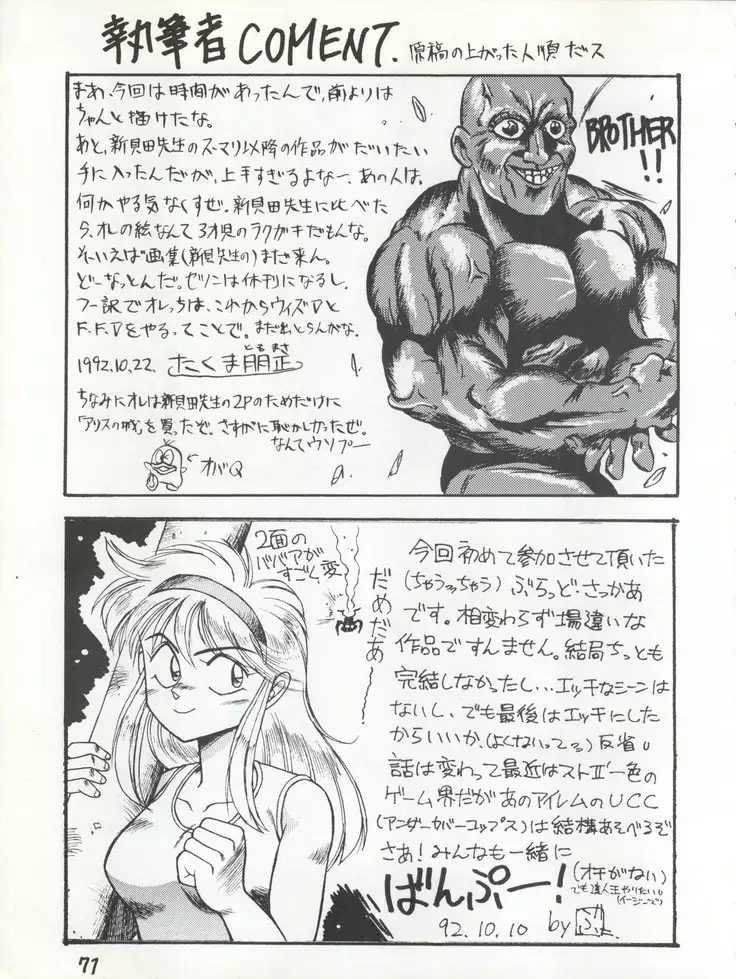 執筆者 COMENT.
原稿の上がった人順だス
まあ、今回は時間があったんで、前よりは
ちゃんと描けたな。
あと、新貝田先生のズマリ以降の作品がだいたい
手に入ったんだが、上手すぎるよなー、あの人は。
何かやる気なくすぜ。新貝田先生に比べた
ら、オレの絵なんて3才児のラクガキだもんな。
そいえば画集(新貝先生の)まだ来ん。
どーなっとんだ。ゼツンは休刊になるし。
フー訳でオレっちは、これからウィズVと
F.F.Vをやるってことで。まだ出とらんがな。
1992.10.22. たくま朋正
ともまさ
ちなみにオレは新貝田先生の2Pのためだけに
「アリスの城」を買ったぞ。さすがに恥かしかったぜ。
なんてウソプー
オバQ
BROTHER
!!
2面の
ババアが
すごく変
だめだあー
今回初めて参加させて頂いた
(ちゃうっちゃう) ぶらっど・さっかあ
です。相変わらず場違いな
作品ですんません。結局ちっとも
完結しなかったし...エッチなシーンは
ないし、でも最後はエッチにした
からいいか、(よくないって) 反省。
話は変わって最近はストⅡ一色の
ゲーム界だがあのアイレムのUCC
(アンダーカバーコップス)は結構あそべるぞ
さあ!みんなも一緒に
ばんぷー!
(オチがない)
でも達人王やりたい。
(イージーで)
92.10.10 by
71